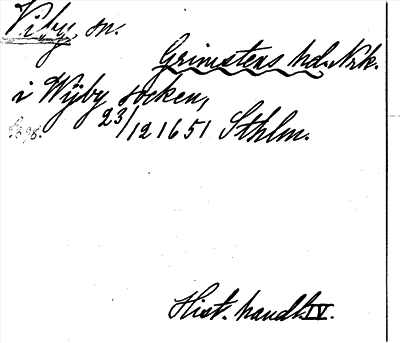 Viby, sn.
Grimstens hd. Nrk.
i Wijby socken,
23/12 1651 Sthlm.
Hist. handl. IV.